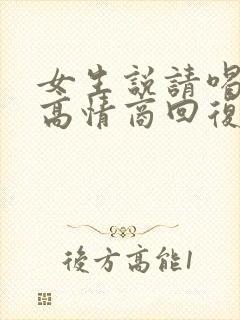 女生説請喝
高情商回復
後方高能1